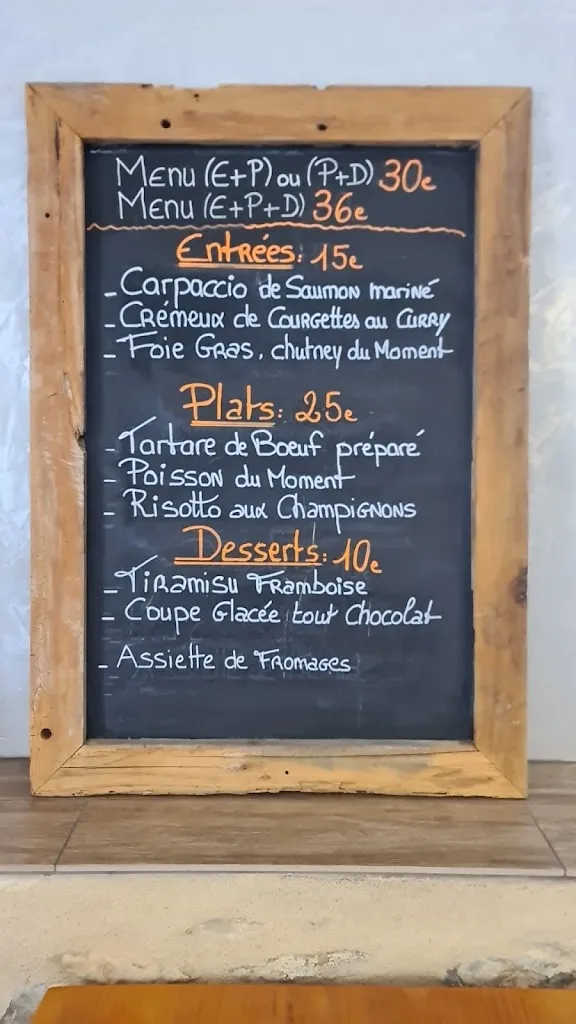 Menu (E+P) ou (P+D) 30€
Menu (E+P+D) 36€
Entrées: 15€
- Carpaccio de Saumon mariné
- Crémeux de Courgettes au Curry
- Foie Gras, chutney du Moment
Plats: 25€
- Tartare de Boeuf préparé
- Poisson du Moment
- Risotto aux Champignons
Desserts: 10€
- Tiramisu Framboise
- Coupe Glacée tout Chocolat
- Assiette de Fromages